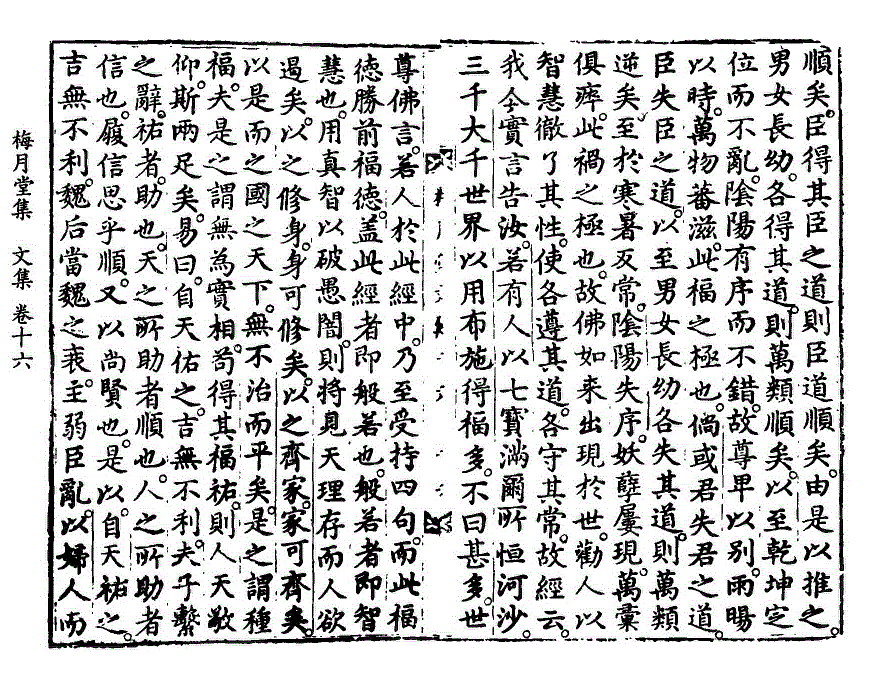 順矣。臣得其臣之道則臣道順矣。由是以推之。
男女長幼。各得其道。則萬類順矣。以至乾坤定
位而不亂。陰陽有序而不錯。故尊卑以別。雨暘
以時。萬物蕃滋。此福之極也。倘或君失君之道。
臣失臣之道。以至男女長幼各失其道。則萬類
逆矣。至於寒暑反常。陰陽失序。妖孽屢現。萬彙
俱瘁。此禍之極也。故佛如來出現於世。勸人以
智慧。徹了其性。使各遵其道。各守其常。故經云。
我今實言告汝。若有人以七寶滿爾所恒河沙。
三千大千世界以用布施。得福多。不曰甚多。世
尊佛言。若人於此經中。乃至受持四句。而此福
德勝前福德。盖此經者即般若也。般若者即智
慧也。用真智以破愚闇。則將見天理存而人欲
遏矣。以之修身。身可修矣。以之齊家。家可齊矣。
以是而之國之天下。無不治而平矣。是之謂種
福。夫是之謂無為實相。苟得其福祐。則人天敬
仰。斯兩足矣。易曰。自天佑之。吉無不利。夫子繫
之辭。祐者。助也。天之所助者順也。人之所助者
信也。履信思乎順。又以尚賢也。是以。自天祐之。
吉無不利。魏后當魏之衰。主弱臣亂。以婦人而
梅月堂集 文集 卷十六